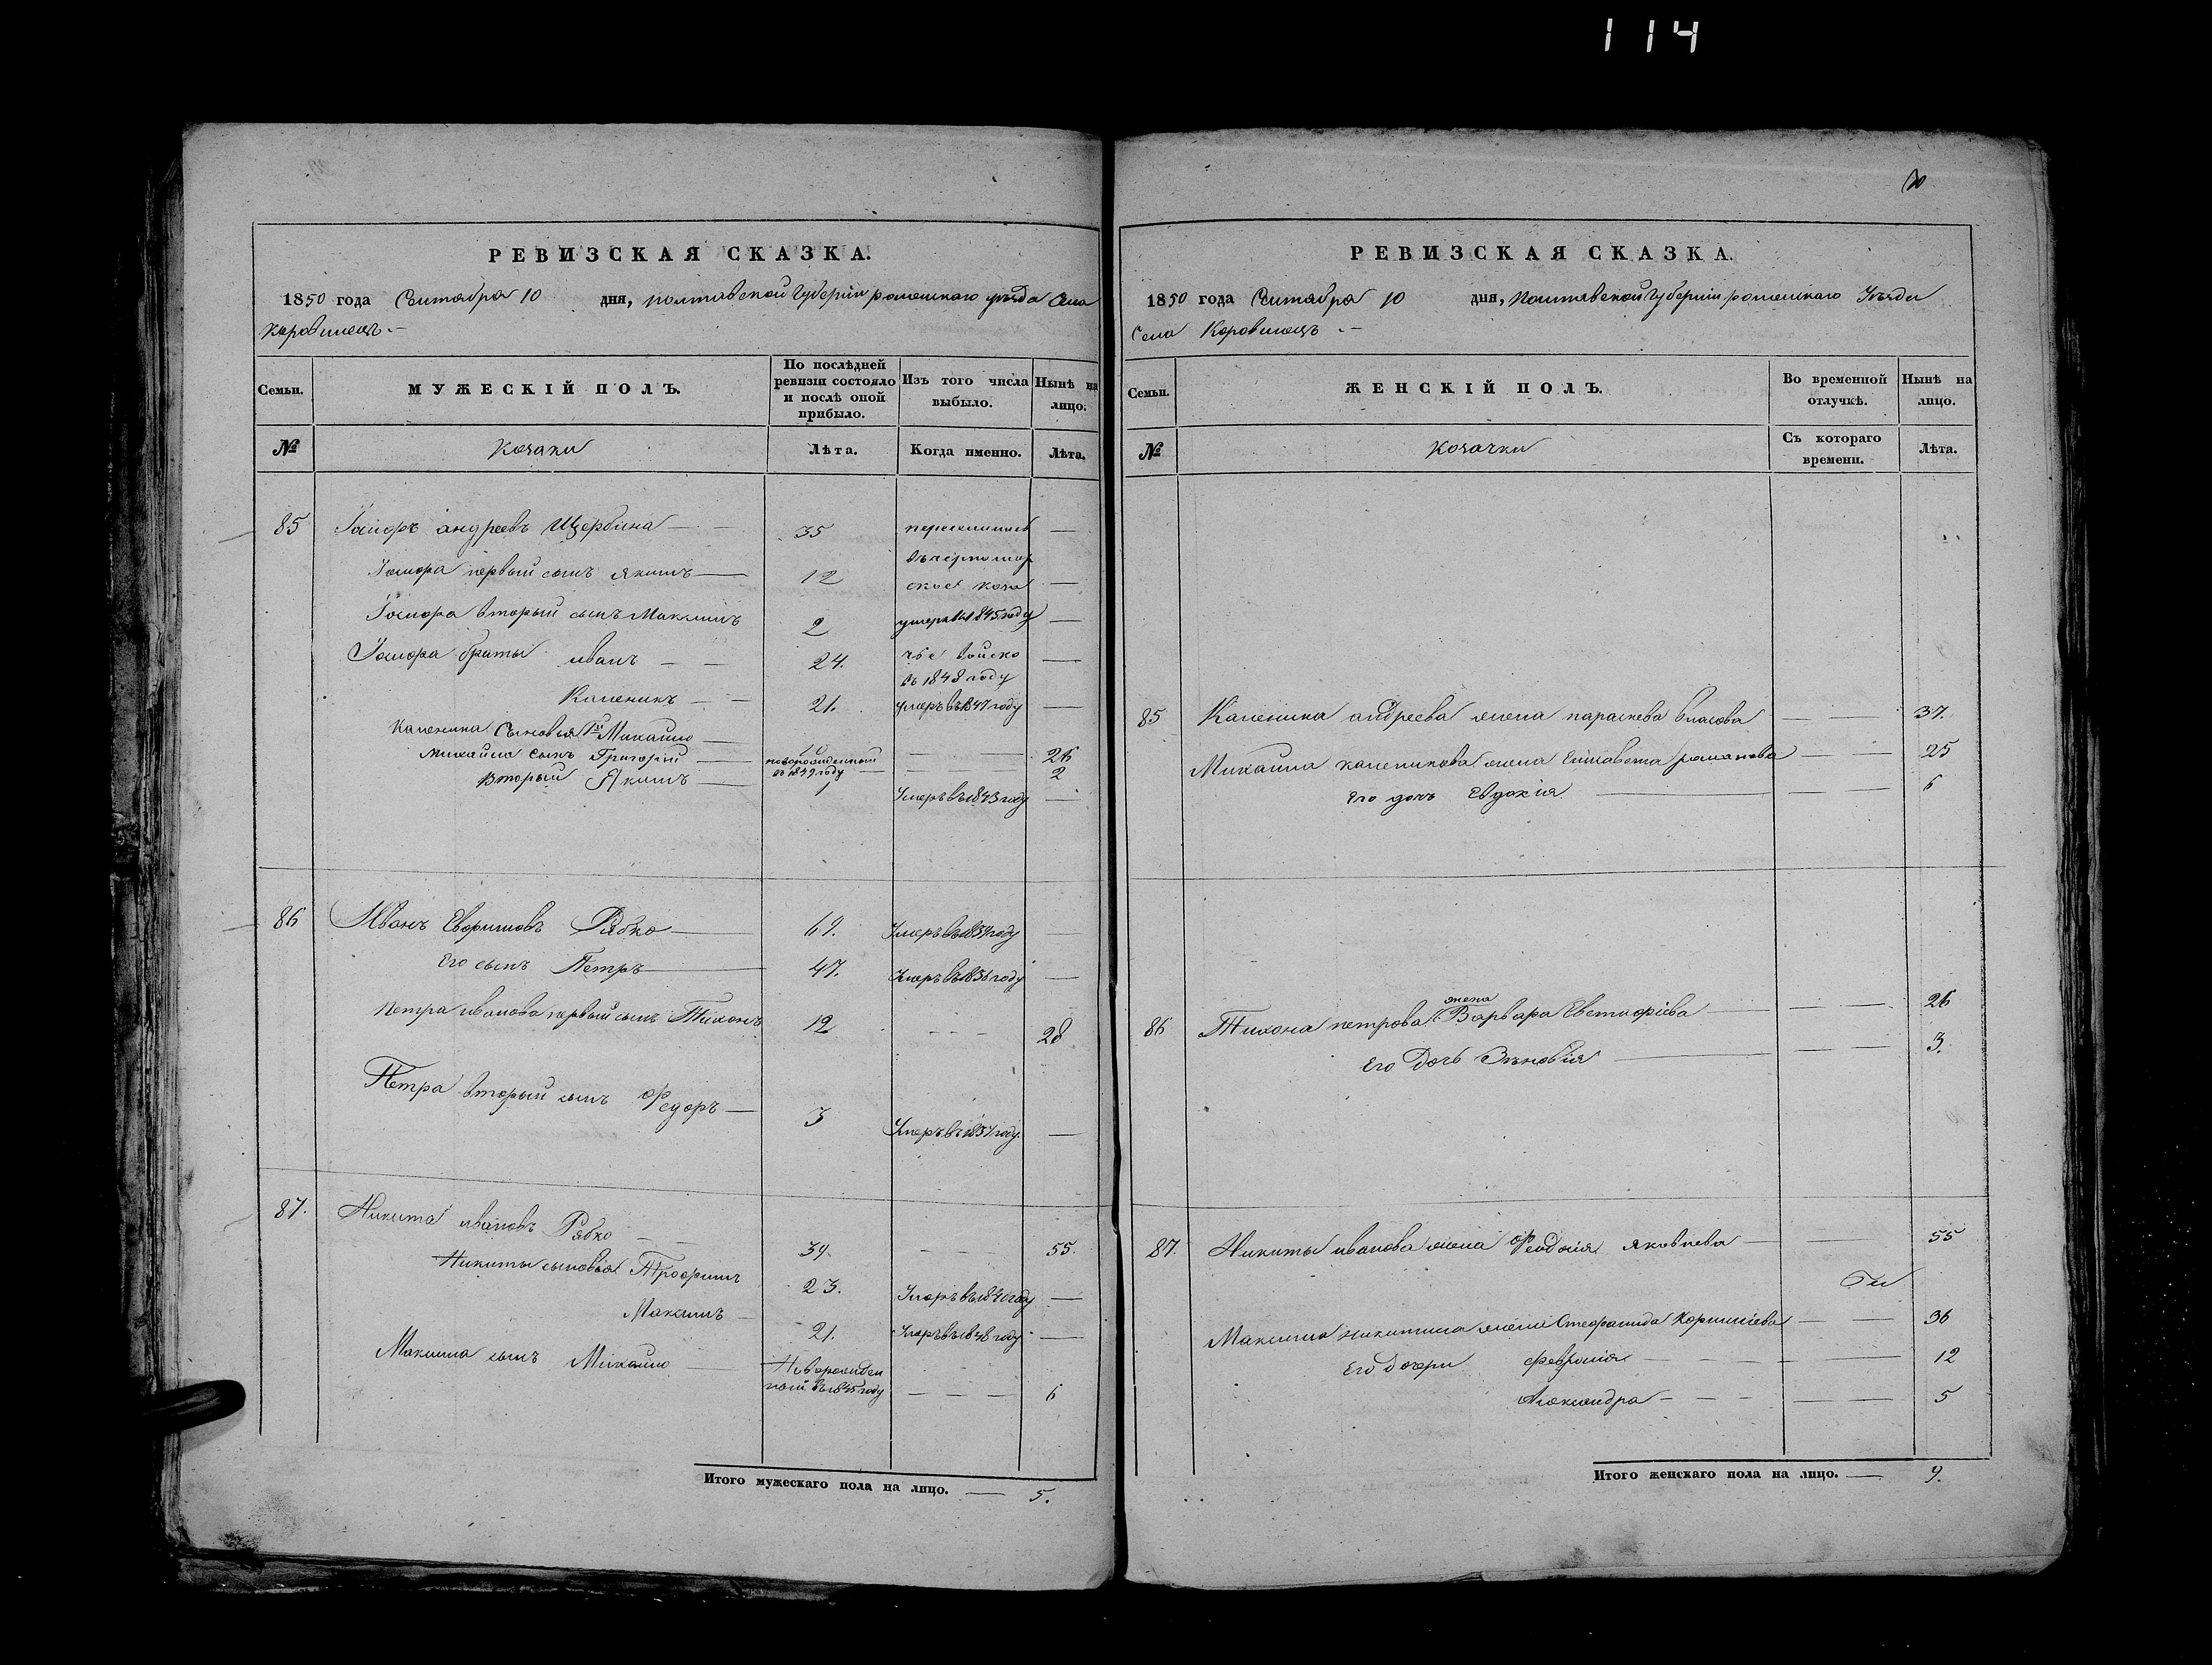 114
РЕВИЗСКАЯ СКАЗКА.
1850 года Сентября 10 дня, полтавской губерніи роменскаго уѣзда села
Коровинецъ.
Семьи.
МУЖЕСКІЙ ПОЛЪ.
По послѣдней ревизіи состояло и послѣ оной прибыло.
Изъ того числа выбыло.
Нынѣ на лицо.
№
Козаки
Лѣта.
Когда именно.
Лѣта.
85 андреевъ Щербина 35 переселились
въ черномор
первый сынъ Якимъ 12 ское коза
вторый сынъ Максимъ 2 умеръ въ 1845 году
браты иванъ 24. чье войско
въ 1848 году
Каленикъ 21. умеръ въ 1847 году
Каленика Сыновья 1й Михайло 26
Михайла сынъ Григорій новорожденный въ 1849 году 2
вторый Якимъ 1 Умеръ въ 1843 году
86 Иванъ Евфимовъ Рябко 69. Умеръ въ 1837 году
Его сынъ Петръ 47. Умеръ въ 1836 году
Петра иванова первый сынъ Тихонъ 12 28
Петра вторый сынъ Федоръ 3 Умеръ въ 1837 году.
87. Никита ивановъ Рябко 39. 55.
Никиты сыновья Трофимъ 23. Умеръ въ 1840 году
Максимъ 21. Умеръ въ 1848 году
Максима сынъ Михайло Новорожден
ный въ 1845 году 6
Итого мужескаго пола на лицо. 5.
РЕВИЗСКАЯ СКАЗКА.
1850 года Сентября 10 дня, Полтавской губерніи роменскаго Уѣзда
Села Коровинецъ
Семьи.
ЖЕНСКІЙ ПОЛЪ.
Во временной отлучкѣ.
Нынѣ на лицо.
№
Козачки
Съ котораго времени.
Лѣта.
85 Каленика андреева жена параскева власова 37.
Михайла каленикова жена Елисавета романова 25
Его дочь Евдокія 6
86 Тихона петрова жена Варвара Евстафіева 26
Его Дочь Зѣновія 3.
87. Никиты иванова жена Феодосія яковлева 55
Максима никитина жена Стефанида Корниліева 36
Его дочери Февронія 12
Александра 5
Итого женскаго пола на лицо. 9.